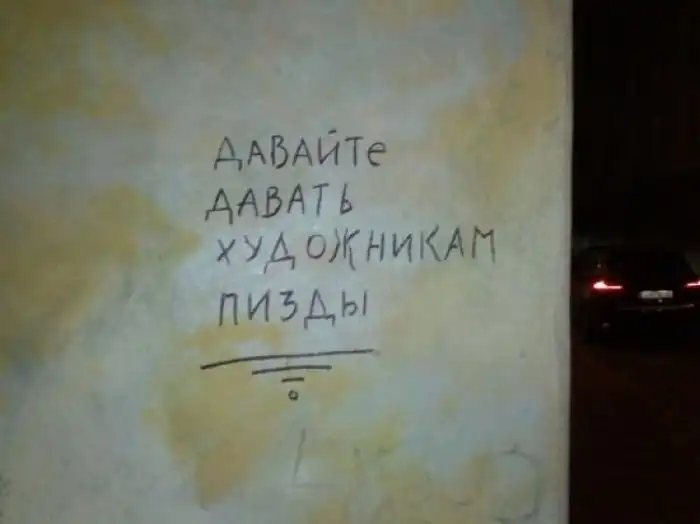 ДАВАЙТЕ
ДАВАТЬ
ХУДОЖНИКАМ
ПИЗДЫ